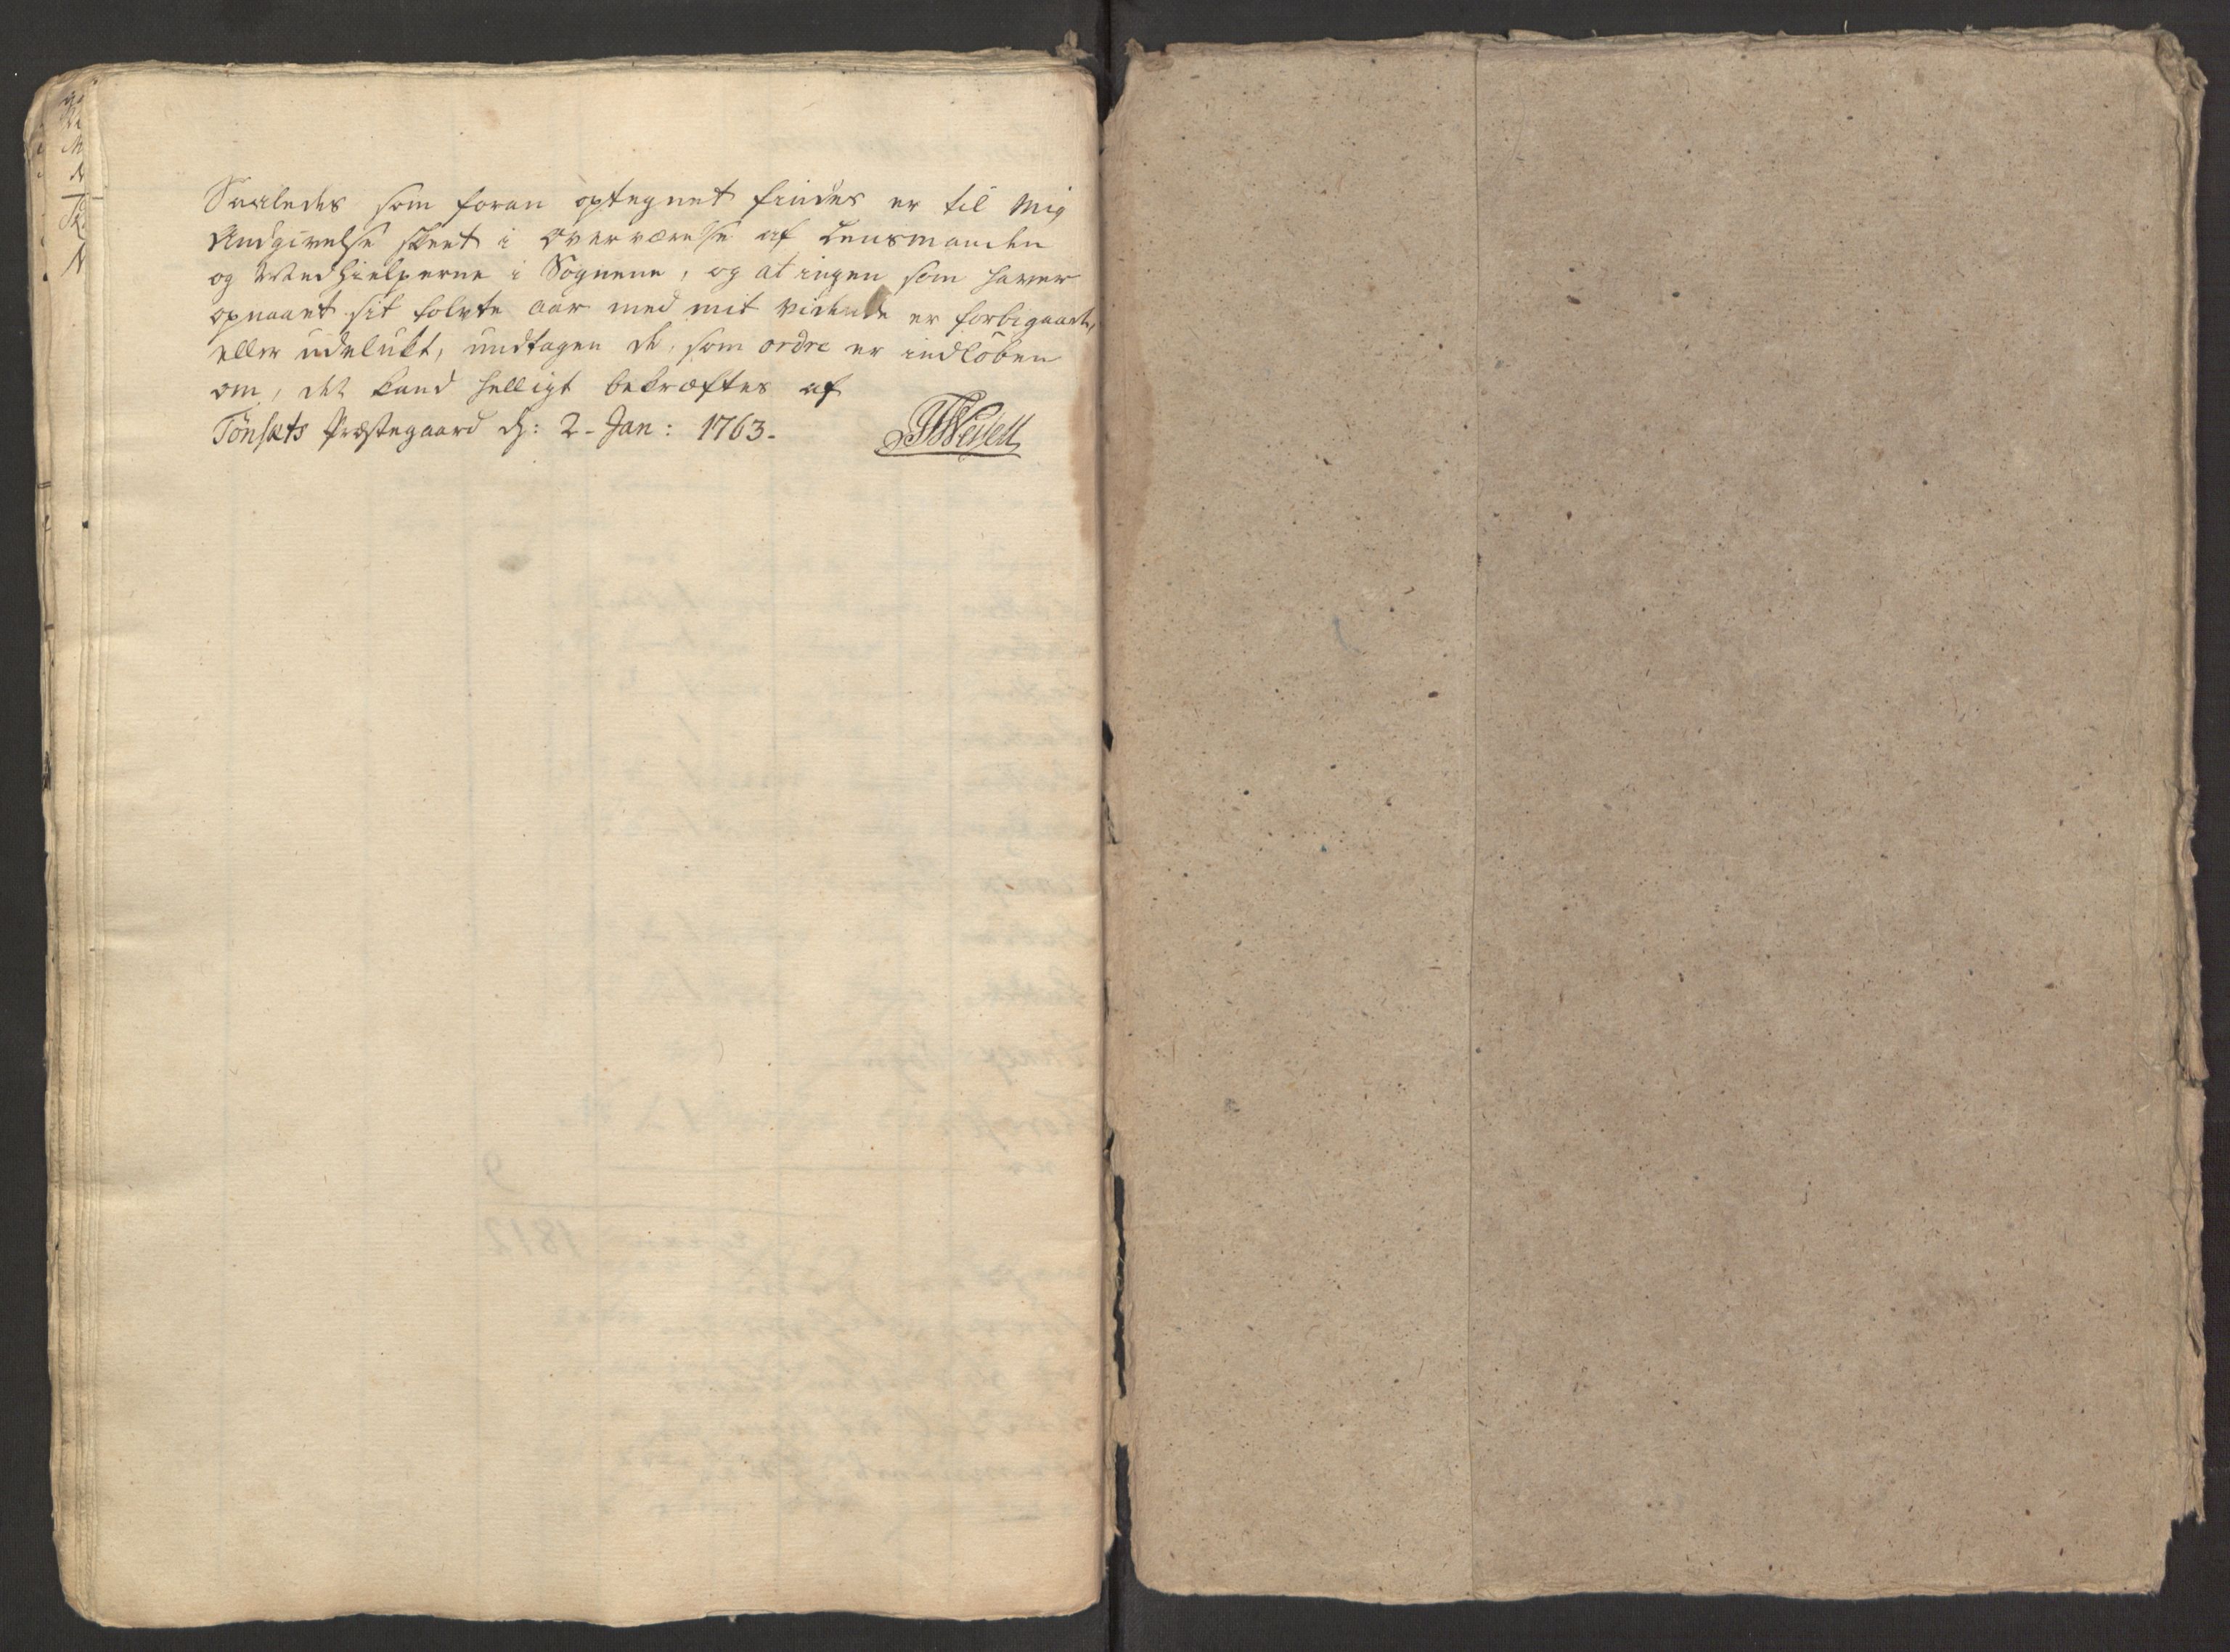 Saaledes som foran optegnet findes er til Mig
Andgivelse skeet i Overværelse af Lensmanden
og Medhielperne i Sognene, og at ingen som haver
opnaaet sit tolvte aar med mit vidende er forbigaaet,
eller udelukt, undtagen de, som ordre er indløben
om, det kand helligt bekræftes af
Tønsæts Præstegaard d: 2 - Jan: 1763 -